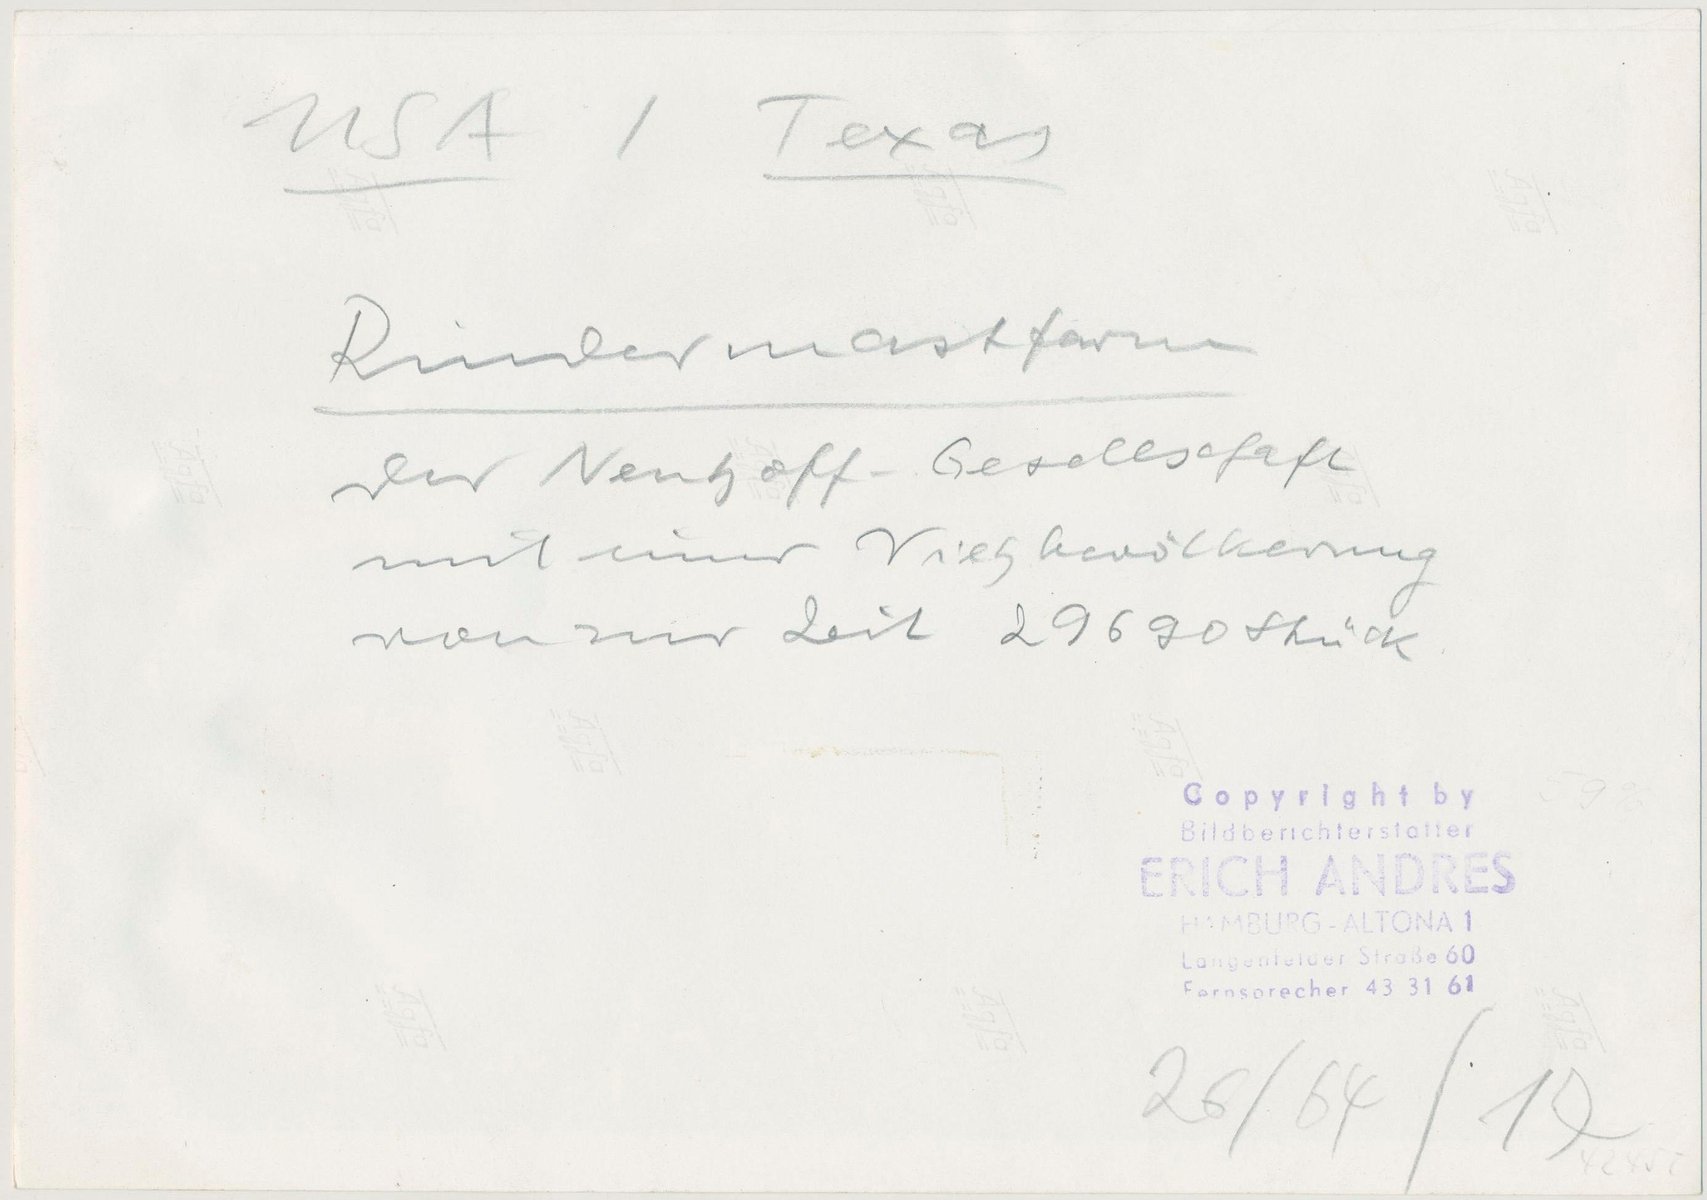 USA / Texas
Rindermastfarm
der Neuhoff-Gesellschaft
mit einer Viehbevölkerung
von zur Zeit 29690 Stück
Copyright by
Bildberichterstatter
ERICH ANDRES
HAMBURG-ALTONA 1
Langenfelder Straße 60
Fernsprecher 43 31 61
26/64/12